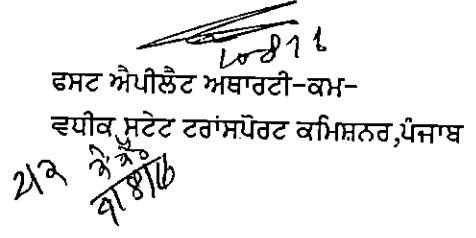 ਫਸਟ ਐਪੀਲੈਟ ਅਥਾਰਟੀ-ਕਮ-
ਵਧੀਕ ਸਟੇਟ ਟਰਾਂਸਪੋਰਟ ਕਮਿਸ਼ਨਰ,ਪੰਜਾਬ
9/8/16